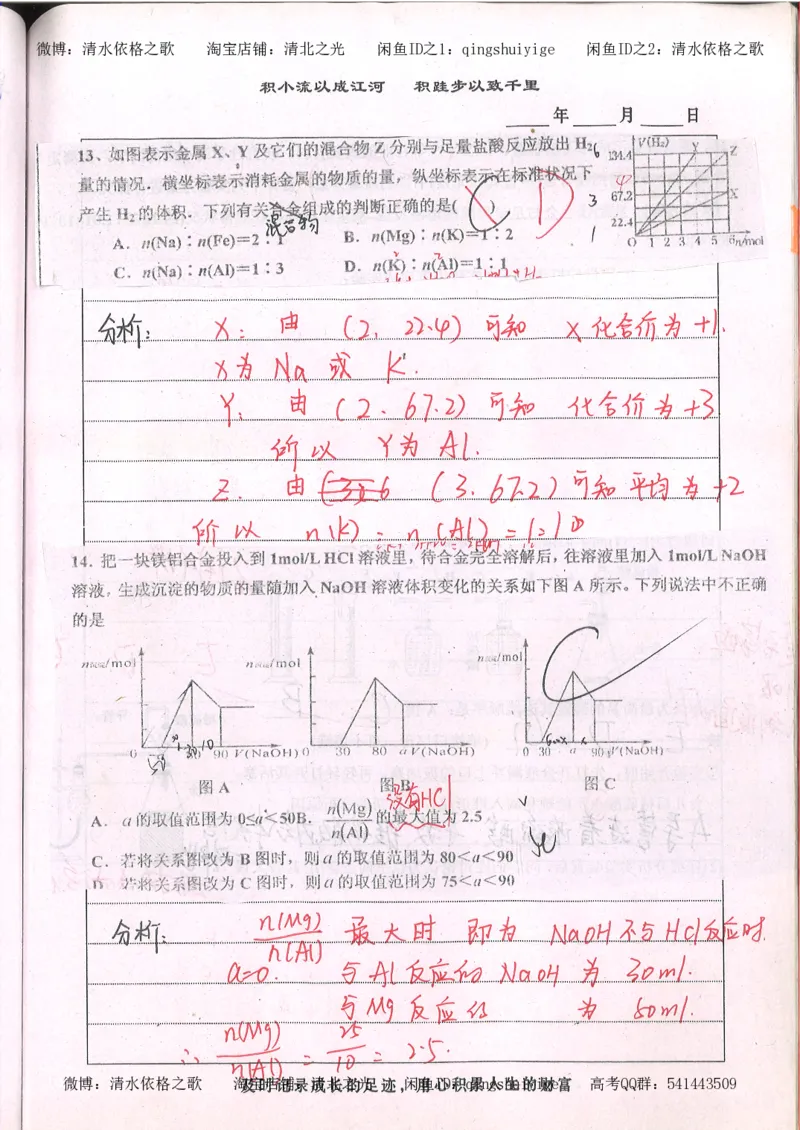 微博：清水依格之歌 淘宝店铺：清北之光 闲鱼ID之1：qingshuiyige 闲鱼ID之2：清水依格之歌
积小流以成江河 积跬步以致千里
年 月 日
13、如图表示金属 X、Y 及它们的混合物 Z 分别与足量盐酸反应放出 H₂
量的情况．横坐标表示消耗金属的物质的量，纵坐标表示在标准状况下
产生 H₂ 的体积．下列有关合金组成的判断正确的是( )
混合物
A．n(Na)∶n(Fe)=2∶1 B．n(Mg)∶n(K)=1∶2
C．n(Na)∶n(Al)=1∶3 D．n(K)∶n(Al)=1∶1
V(H₂)
134.4
67.2
22.4
Y
Z
X
0 1 2 3 4 5 6 n/mol
6
3
1
分析：X：由（2，22.4）可知 X化合价为+1.
X为 Na 或 K.
Y：由（2．67.2）可知 化合价为+3
所以 Y为 Al.
Z．由（3．67.2）可知 平均为+2
所以 n(K)：n(Al)=1：1
14．把一块镁铝合金投入到 1mol/L HCl 溶液里，待合金完全溶解后，往溶液里加入 1mol/L NaOH
溶液，生成沉淀的物质的量随加入 NaOH 溶液体积变化的关系如下图 A 所示。下列说法中不正确
的是
n沉淀/mol n沉淀/mol n沉淀/mol
0 90 V(NaOH) 0 30 80 a V(NaOH) 0 30 a 90 V(NaOH)
图 A 图 B 图 C
没有HCl
A． a的取值范围为 0≤a＜50 B．n(Mg)/n(Al) 的最大值为 2.5
C．若将关系图改为 B 图时，则 a 的取值范围为 80＜a＜90
D．若将关系图改为 C 图时，则 a 的取值范围为 75＜a＜90
分析：n(Mg)/n(Al) 最大时 即为 NaOH不与HCl反应时.
a=0. 与Al反应的 NaOH 为 30ml.
与Mg反应的 为 50ml.
∴ n(Mg)/n(Al) = 25/10 = 2.5.
及时记录成长的足迹，用心积累人生的财富
微博：清水依格之歌 淘宝店铺：清北之光 闲鱼ID之1：qingshuiyige 高考QQ群：541443509